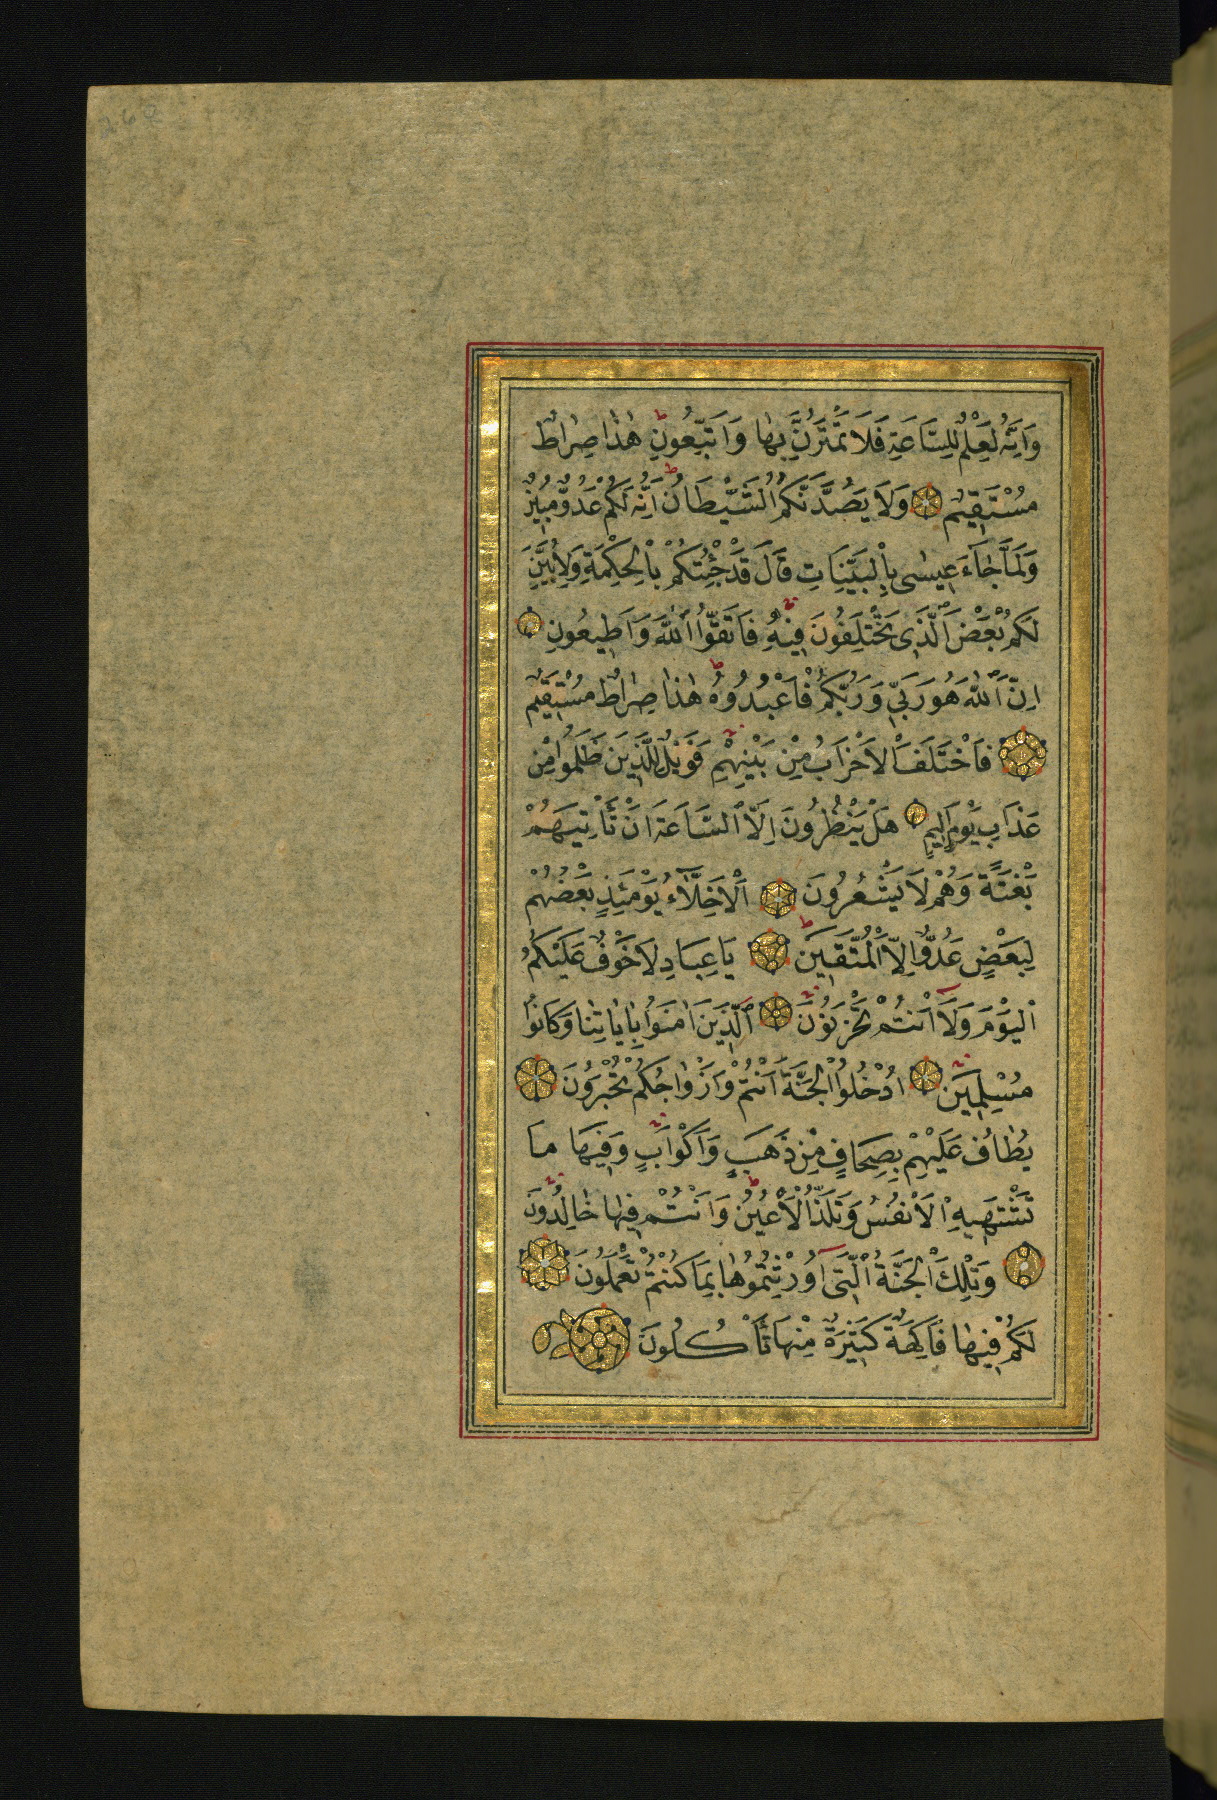 وَاِنَّهُ لَعِلْمٌ لِلسَّاعَةِ فَلَا تَمْتَرُنَّ بِهَا وَاتَّبِعُونِ هٰذَا صِرَاطٌ
مُسْتَقِيمٌ وَلَا يَصُدَّنَّكُمُ الشَّيْطَانُ اِنَّهُ لَكُمْ عَدُوٌّ مُبِينٌ
وَلَمَّا جَاءَ عِيسٰى بِالْبَيِّنَاتِ قَالَ قَدْ جِئْتُكُمْ بِالْحِكْمَةِ وَلِاُبَيِّنَ
لَكُمْ بَعْضَ الَّذِى تَخْتَلِفُونَ فِيهِ فَاتَّقُوا اللّٰهَ وَاَطِيعُونِ
اِنَّ اللّٰهَ هُوَ رَبِّى وَرَبُّكُمْ فَاعْبُدُوهُ هٰذَا صِرَاطٌ مُسْتَقِيمٌ
فَاخْتَلَفَ الْاَحْزَابُ مِنْ بَيْنِهِمْ فَوَيْلٌ لِلَّذِينَ ظَلَمُوا مِنْ
عَذَابِ يَوْمٍ اَلِيمٍ هَلْ يَنْظُرُونَ اِلَّا السَّاعَةَ اَنْ تَأْتِيَهُمْ
بَغْتَةً وَهُمْ لَا يَشْعُرُونَ اَلْاَخِلَّاءُ يَوْمَئِذٍ بَعْضُهُمْ
لِبَعْضٍ عَدُوٌّ اِلَّا الْمُتَّقِينَ يَا عِبَادِ لَا خَوْفٌ عَلَيْكُمُ
الْيَوْمَ وَلَا اَنْتُمْ تَحْزَنُونَ اَلَّذِينَ اٰمَنُوا بِاٰيَاتِنَا وَكَانُوا
مُسْلِمِينَ اُدْخُلُوا الْجَنَّةَ اَنْتُمْ وَاَزْوَاجُكُمْ تُحْبَرُونَ
يُطَافُ عَلَيْهِمْ بِصِحَافٍ مِنْ ذَهَبٍ وَاَكْوَابٍ وَفِيهَا مَا
تَشْتَهِيهِ الْاَنْفُسُ وَتَلَذُّ الْاَعْيُنُ وَاَنْتُمْ فِيهَا خَالِدُونَ
وَتِلْكَ الْجَنَّةُ الَّتِى اُورِثْتُمُوهَا بِمَا كُنْتُمْ تَعْمَلُونَ
لَكُمْ فِيهَا فَاكِهَةٌ كَثِيرَةٌ مِنْهَا تَأْكُلُونَ